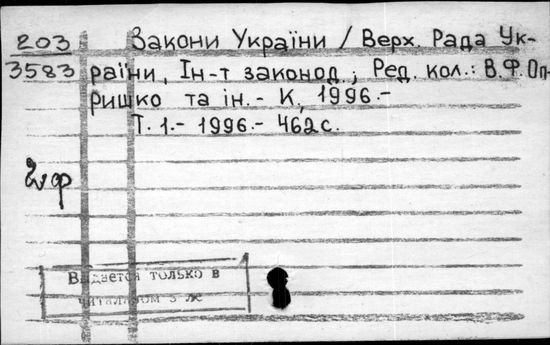 203
3583
Закони України / Верх. Рада Ук-
раїни, Ін-т законод.; Ред. кол.: В.Ф.Оп-
ришко та ін. - К, 1996.-
Т. 1.- 1996.- 462с.
Выдается только в